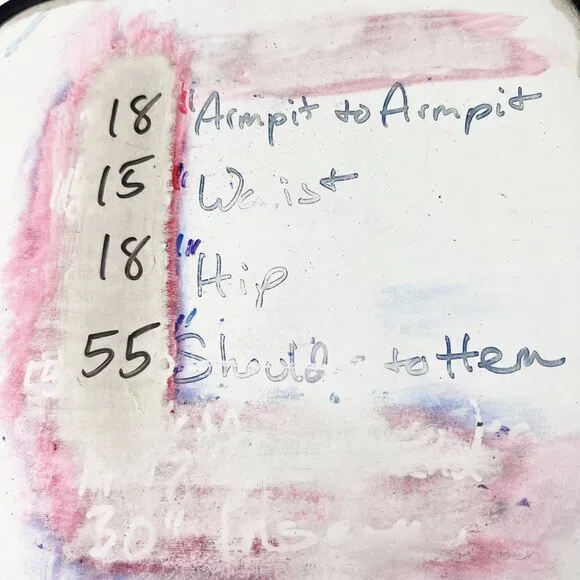 18" Armpit to Armpit
15" Waist
18" Hip
55" Should to Hem
30" Inseam